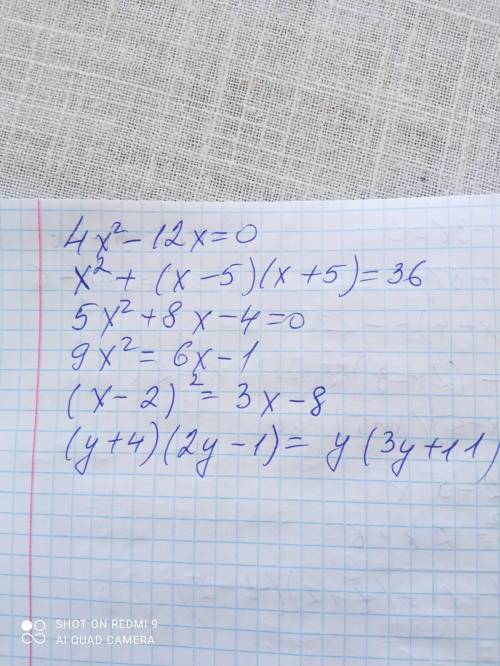 4x² - 12x = 0
x² + (x - 5)(x + 5) = 36
5x² + 8x - 4 = 0
9x² = 6x - 1
(x - 2)² = 3x - 8
(y + 4)(2y - 1) = y(3y + 11)
SHOT ON REDMI 9
AI QUAD CAMERA